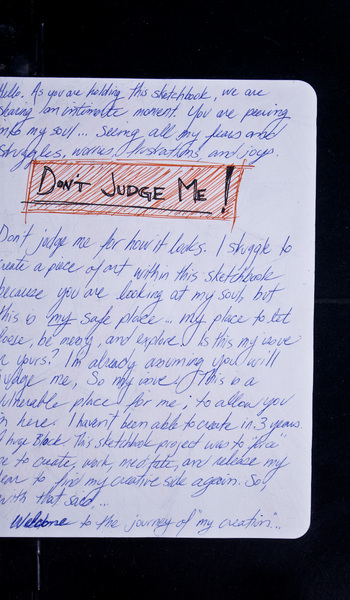 Hello. As you are holding this sketchbook, we are
sharing an intimate moment. You are peering
into my soul... seeing all my fears and
struggles, worries, frustrations, and joys.
DON'T JUDGE ME!
Don't judge me for how it looks. I struggle to
create a piece of art within this sketchbook
because you are looking at my soul, but
this is my safe place... my place to let
loose, be messy, and explore. Is this my move
or yours? I'm already assuming you will
judge me, So my move. This is a
vulnerable place for me; to allow you
in here. I haven't been able to create in 3 years.
A huge Block. This sketchbook project was to "force"
me to create, work, meditate, and release my
fear to find my creative side again. So,
with that said...
Welcome to the journey of "my creation"...